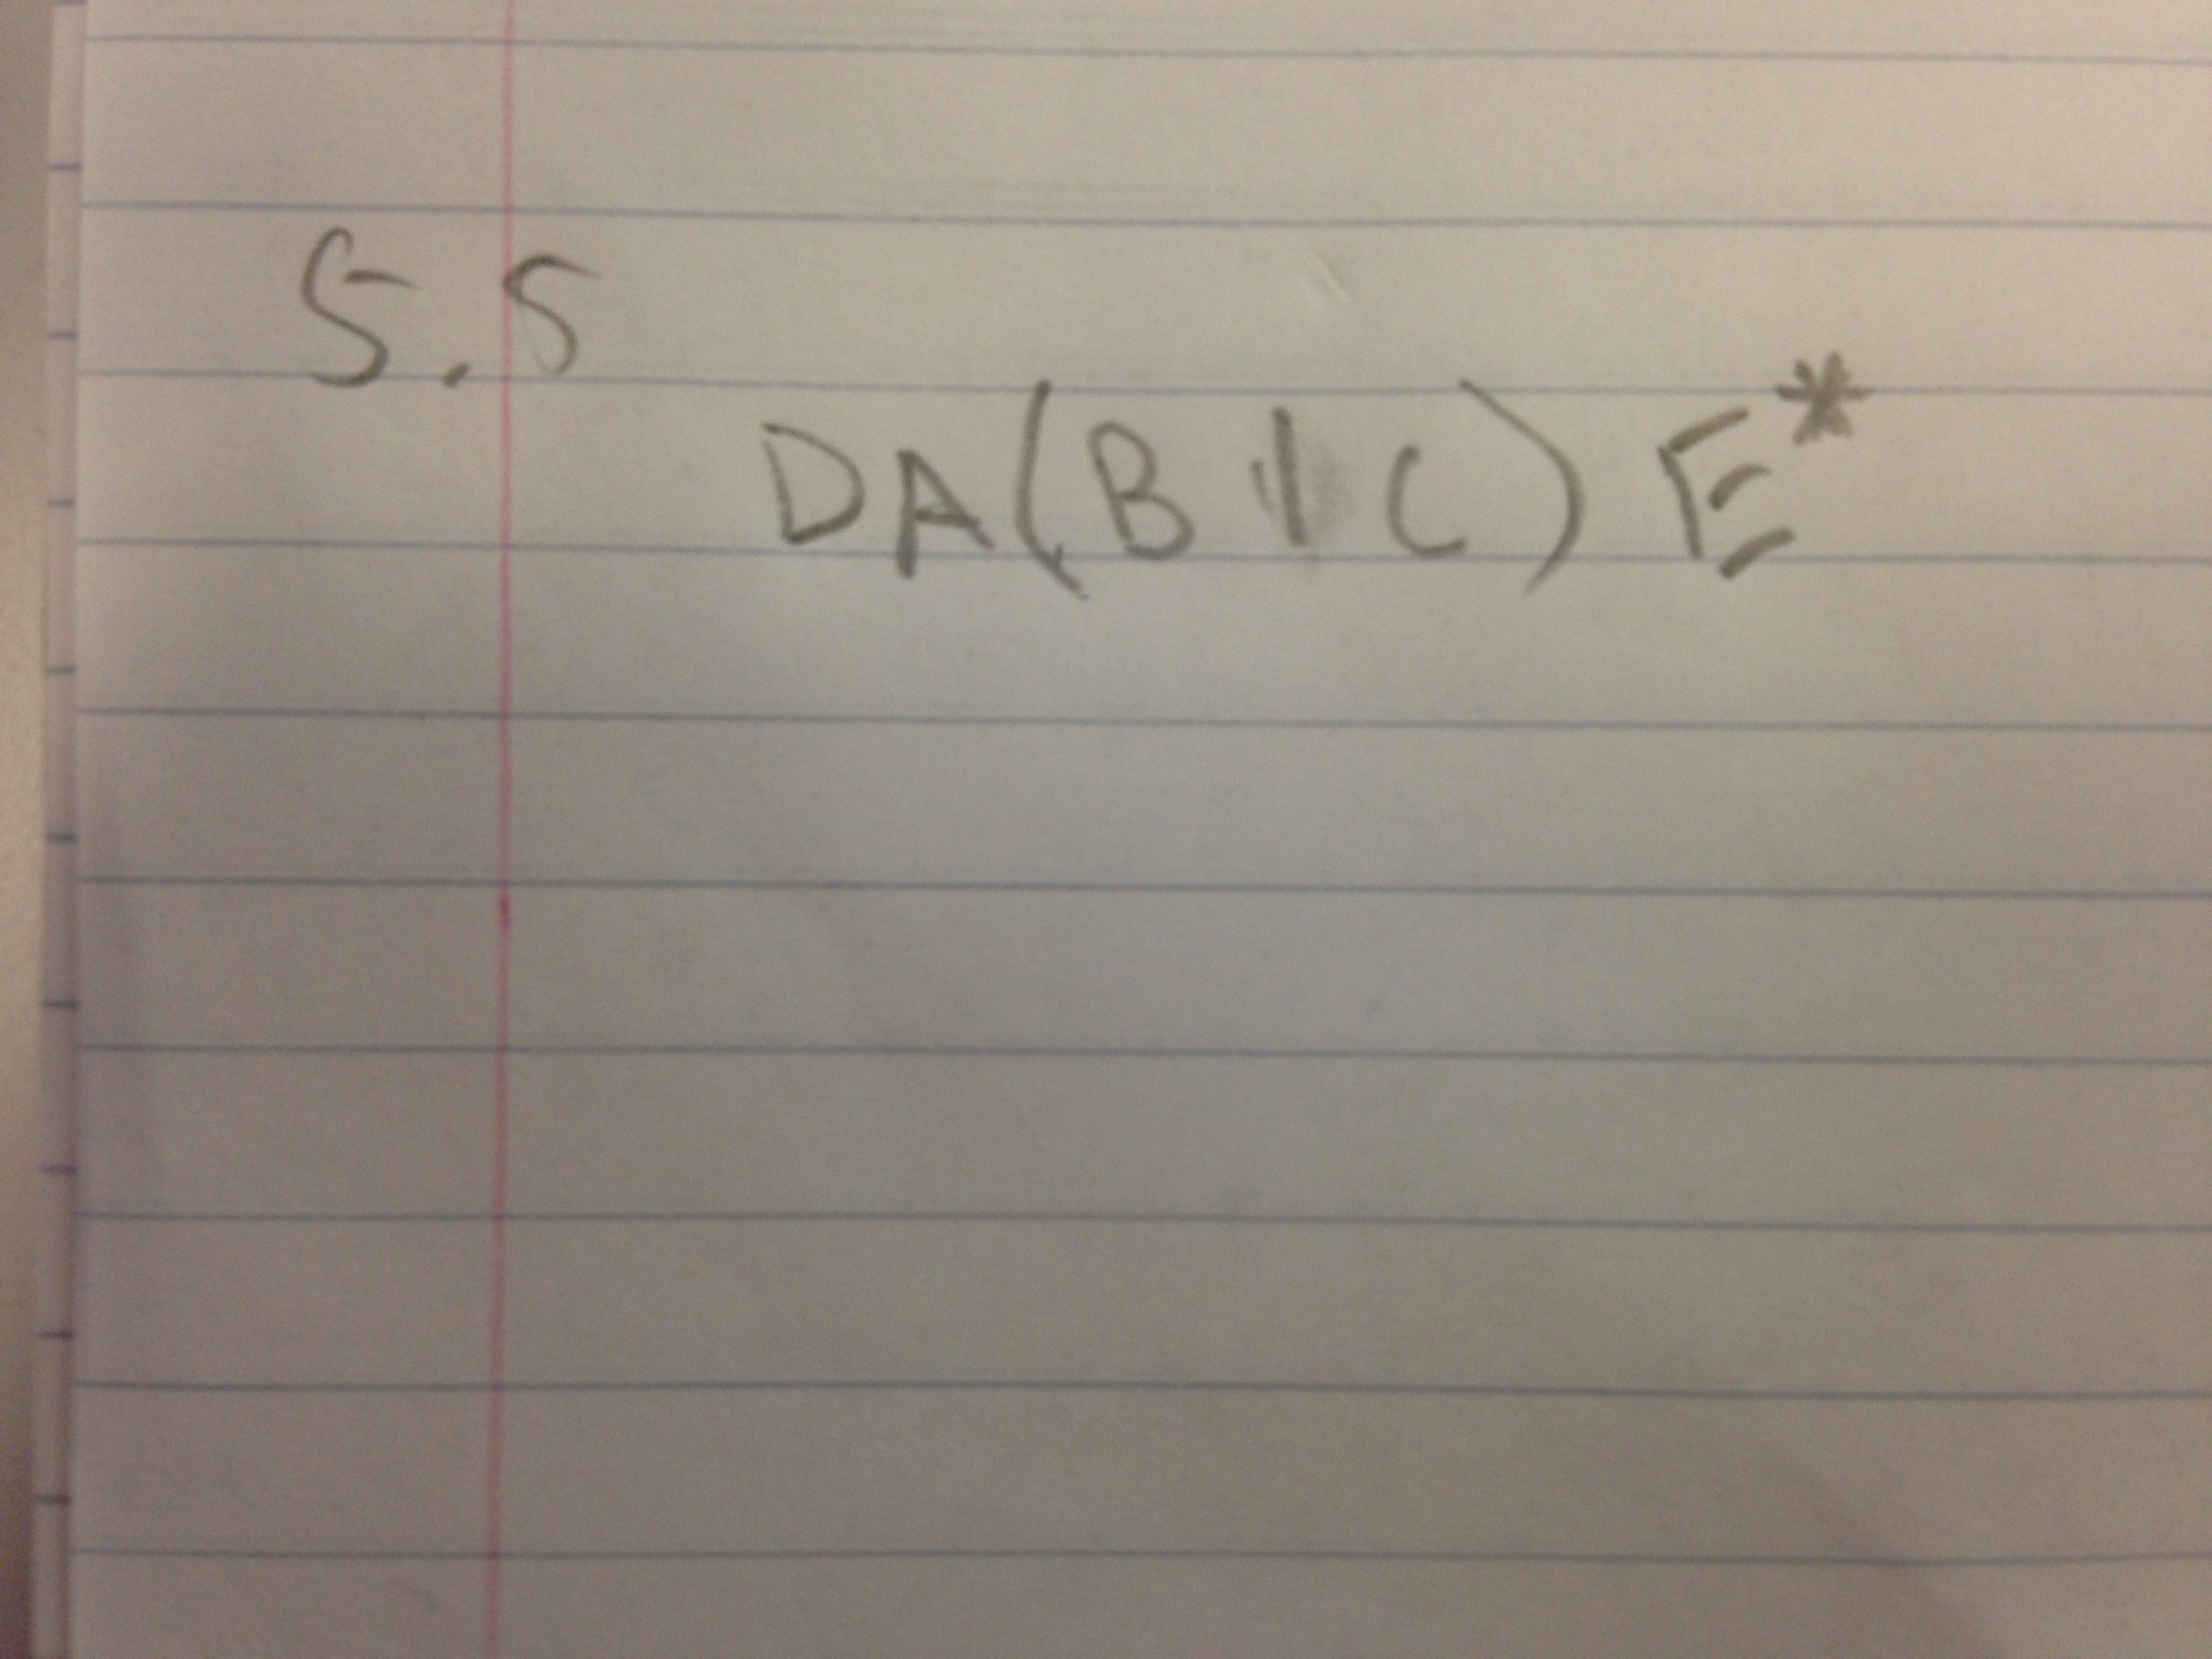 5.5
DA(B|C)E*